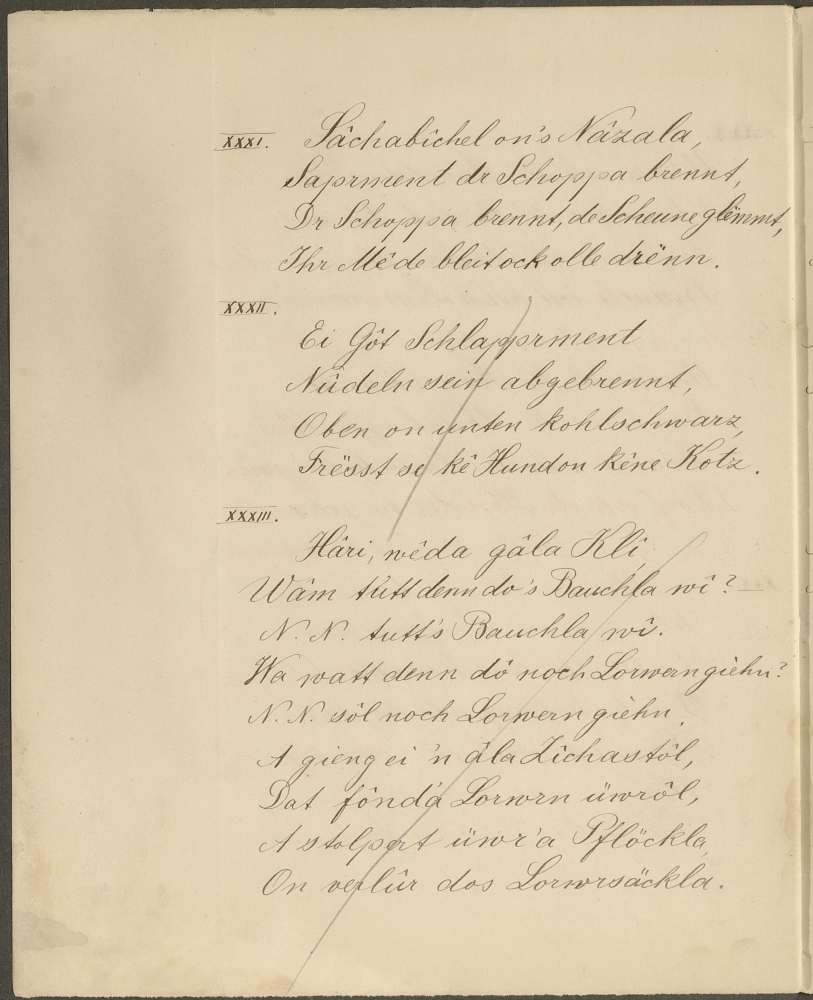 XXXI. Sâchabîchel on's Nâzala,
Saprment dr Schoppa brennt,
Dr Schoppa brennt, de Scheune glëmmt,
Ihr Mêde bleit ock olle drënn.
XXXII.
Ei Gôt Schlapprment
Nûdeln sein abgebrennt,
Oben on unten kohlschwarz,
Frësst se kê Hund on kêne Kotz.
XXXIII.
Hâri, wêda gâla Klî
Wâm tutt denn do's Bauchla wî?
N. N. tutt's Bauchla wî.
Wa watt denn dô noch Lorwern giehn?
N. N. sôl noch Lorwern giehn.
A gieng ei 'n âla Zichastôl,
Dat fônd a Lorwrn üwrôl,
A stolpert üwr'a Pflöckla,
On verlûr dos Lorwrsäckla.